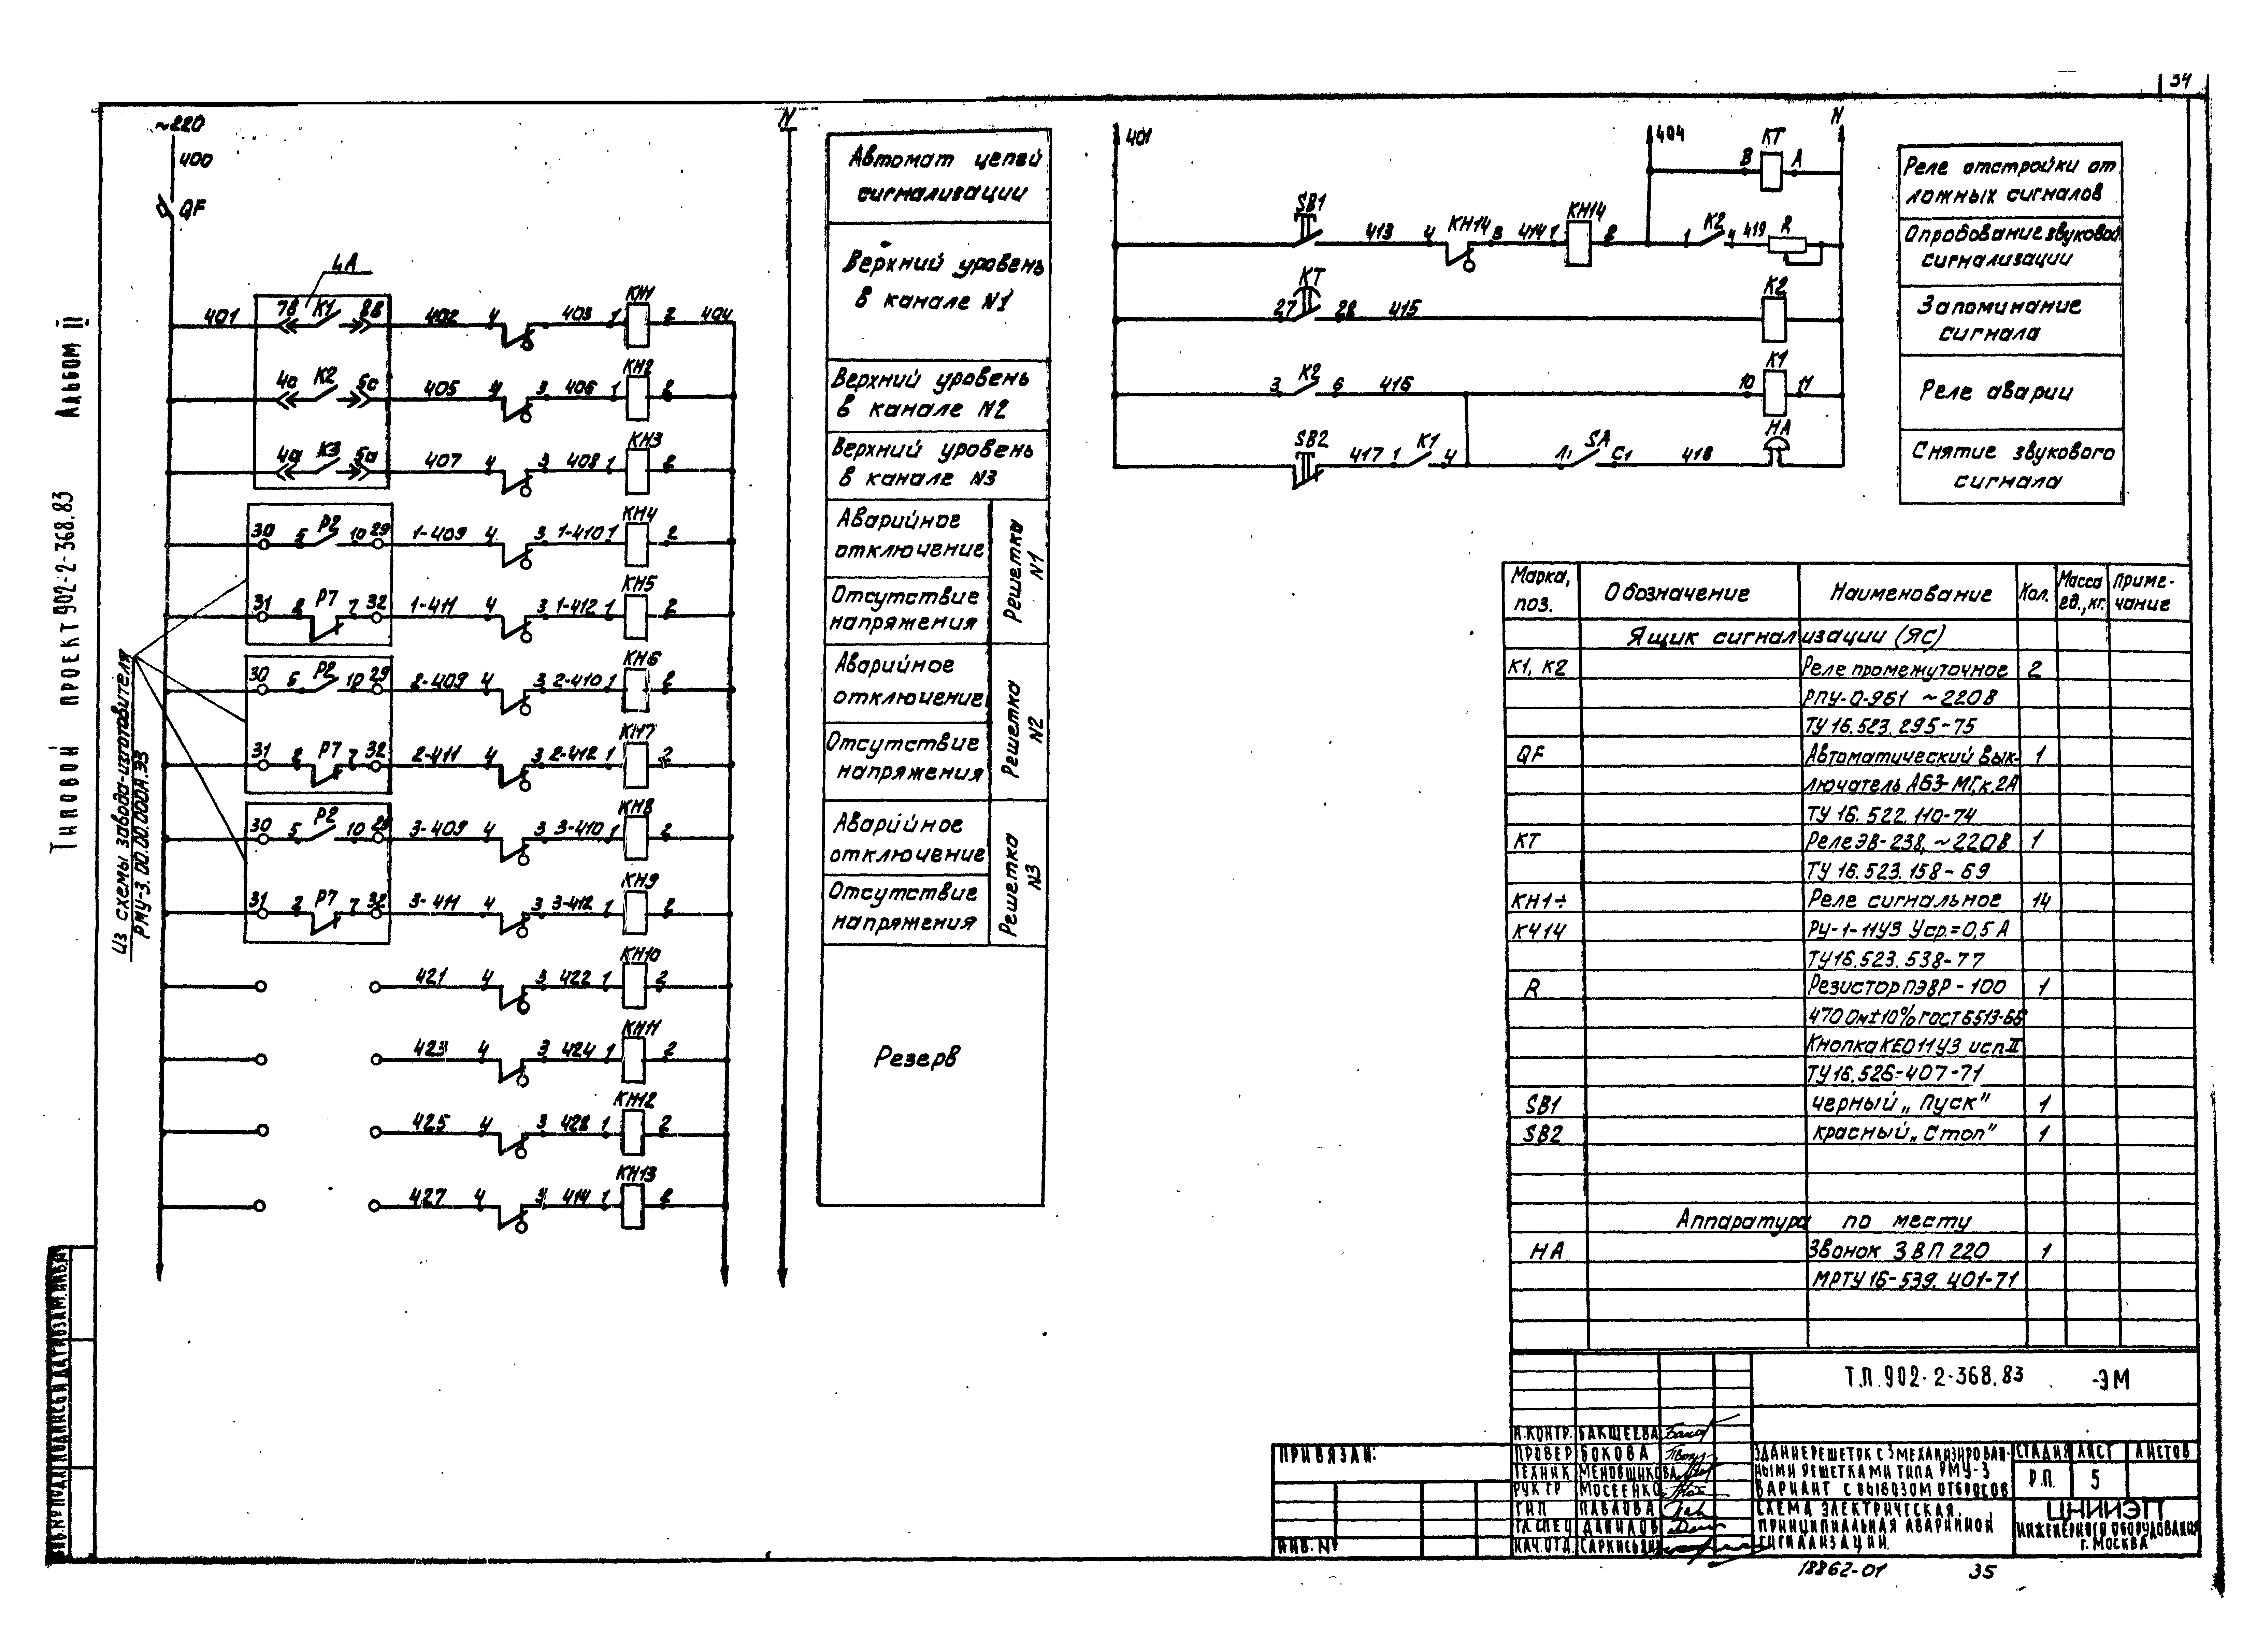 34
Типовой проект 902-2-368.83 Альбом II
~220
400
QF
N
4А
401 7в К1 8в 402 4 403 1 КН1 2 404
4с К2 5с 405 4 3 406 1 КН2 2
4а К3 5а 407 4 3 408 1 КН3 2
30 5 Р2 10 29 1-409 4 3 1-410 1 КН4 2
31 2 Р7 7 32 1-411 4 3 1-412 1 КН5 2
30 5 Р2 10 29 2-409 4 3 2-410 1 КН6 2
31 2 Р7 7 32 2-411 4 3 2-412 1 КН7 2
30 5 Р2 10 29 3-409 4 3 3-410 1 КН8 2
31 2 Р7 7 32 3-411 4 3 3-412 1 КН9 2
421 4 3 422 1 КН10 2
423 4 3 424 1 КН11 2
425 4 3 428 1 КН12 2
427 4 3 414 1 КН13 2
Из схемы завода-изготовителя
РМУ-3.00.00.000Н.ЭЗ
Автомат цепей
сигнализации
Верхний уровень
в канале N1
Верхний уровень
в канале N2
Верхний уровень
в канале N3
Аварийное
отключение
Отсутствие
напряжения
Решетка
N1
Аварийное
отключение
Отсутствие
напряжения
Решетка
N2
Аварийное
отключение
Отсутствие
напряжения
Решетка
N3
Резерв
401
404
N
В КТ А
SB1 413 4 КН14 3 414 1 КН14 2 1 К2 4 419 R
27 КТ 28 415 К2
3 К2 6 416 10 К1 11
SB2 417 1 К1 4 Л1 SA С1 418 НА
Реле отстройки от
ложных сигналов
Опробование звуковой
сигнализации
Запоминание
сигнала
Реле аварии
Снятие звукового
сигнала
Марка, поз. Обозначение Наименование Кол. Масса ед., кг. Приме-чание
Ящик сигнализации (ЯС)
К1, К2 Реле промежуточное 2
РПУ-0-961 ~220В
ТУ 16.523.295-75
QF Автоматический вык- 1
лючатель АБ3-МГ, к.2А
ТУ 16.522.110-74
КТ Реле ЭВ-238, ~220В 1
ТУ 16.523.158-69
КН1÷ Реле сигнальное 14
КЧ14 РУ-1-11У3 Уср.=0,5 А
ТУ16.523.538-77
R Резистор ПЭВР-100 1
470 Ом±10% ГОСТ 6513-66
Кнопка КЕ011У3 исп II
ТУ16.526-407-71
SB1 черный „Пуск" 1
SB2 красный „Стоп" 1
Аппаратура по месту
НА Звонок ЗВП 220 1
МРТУ16-539.401-71
Т.П. 902-2-368.83 -ЭМ
Н.контр. Бакшеева
Провер Бокова
Техник Меновщикова
Рук гр Мосеенко
ГИП Павлова
Гл.спец Данилов
Нач.отд. Саркисьян
Здание решеток с 3 механизирован-
ными решетками типа РМУ-3
Вариант с вывозом отбросов
Схема электрическая
принципиальная аварийной
сигнализации.
Стадия Лист Листов
Р.П. 5
ЦНИИЭП
инженерного оборудования
г. Москва
Привязан:
Инв. №
Инв.№ подл. Подпись и дата Взам.инв.№
18862-01 35